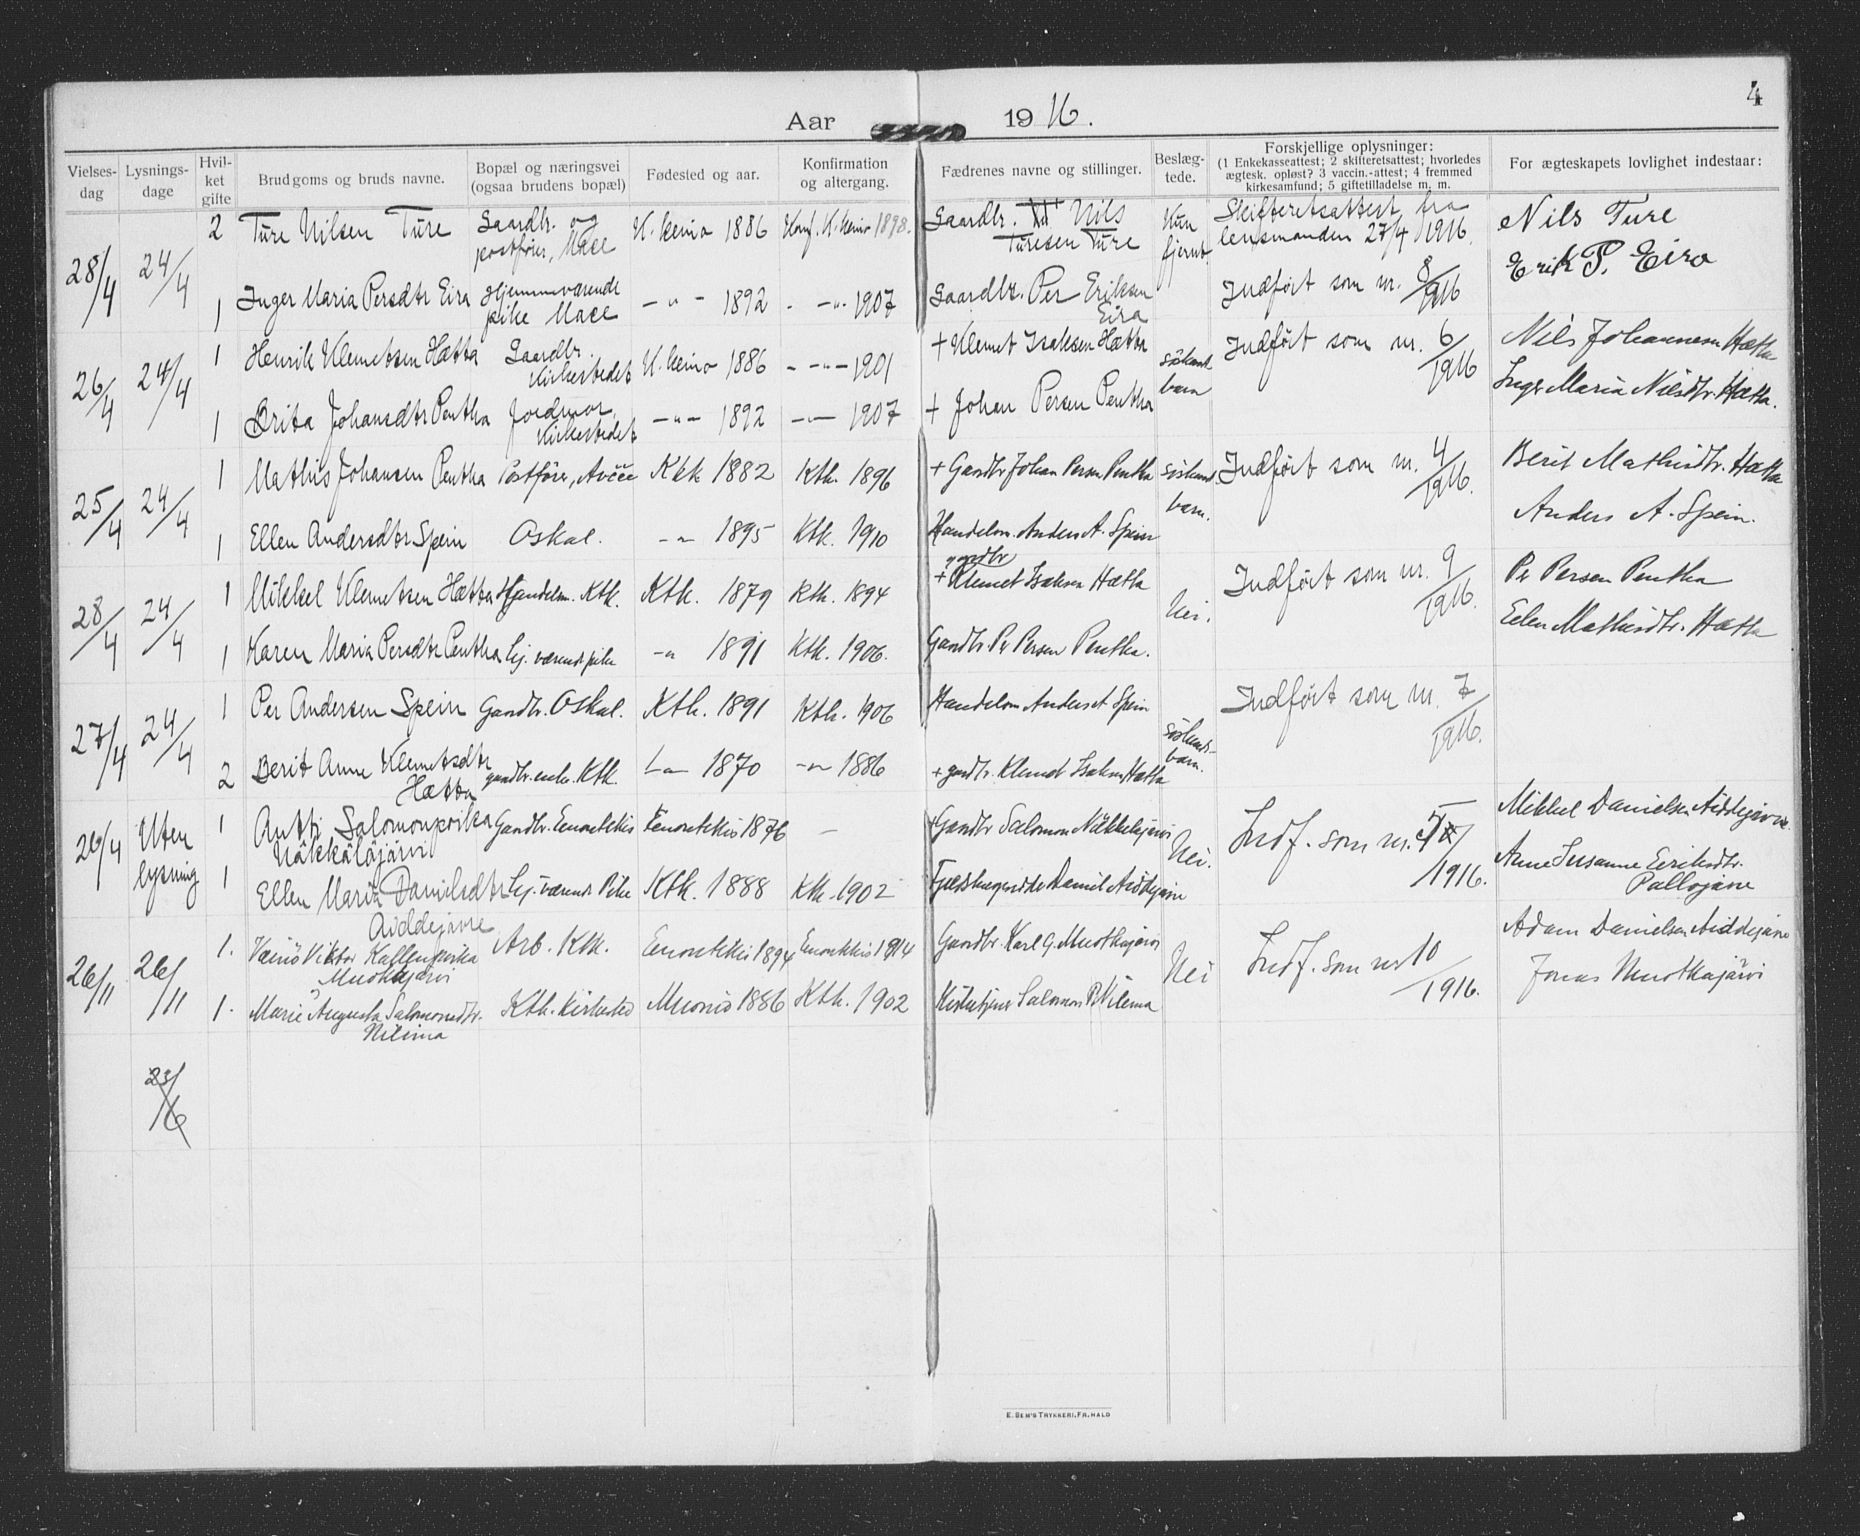 4
Aar 1916.
Vielses-dag
Lysnings-dage
Hvil-ket gifte
Brudgoms og bruds navne.
Bopæl og næringsvei (ogsaa brudens bopæl)
Fødested og aar.
Konfirmation og altergang.
Fædrenes navne og stillinger.
Beslæg-tede.
Forskjellige oplysninger:
(1 Enkekasseattest; 2 skifteretsattest; hvorledes
ægtesk. opløst? 3 vaccin.-attest; 4 fremmed
kirkesamfund; 5 giftetilladelse m. m.
For ægteskapets lovlighet indestaar:
28/4 24/4
2 Ture Nilsen Ture Gaardbr. og postfører, Mace K. keino 1886 Konf. K. keino 1898. Gaardbr. Nils Turesen Ture Kun fjernt Skifteretsattest fra lensmanden 27/4 1916. Nils Ture
1 Inger Maria Persdtr Eira Hjemmeværende pike Mace -"- 1892 - -"- 1907 Gaardbr. Per Eriksen Eira Indført som nr. 8/1916 Erik P. Eira
26/4 24/4
1 Henrik Klemetsen Hætta Gaardbr. Kirkestedet K. keino 1886 - -"- 1901 + Klemet Isaksen Hætta söskendbarn Indført som nr. 6/1916 Nils Johannesen Hætta
1 Brita Johansdtr Pentha Jordmor, Kirkestedet -"- 1892 -"- 1907 + Johan Persen Pentha Inger Maria Nilsdtr. Hætta.
25/4 24/4
1 Mathis Johansen Pentha Postfører, Avčče Ktk 1882 Ktk. 1896 + Gaardbr Johan Persen Pentha söskendbarn. Indført som nr. 4/1916. Berit Mathisdtr. Hætta
1 Ellen Andersdtr Spein Oskal. -"- 1895 Ktk. 1910 Handelsm. Anders A. Spein Anders A. Spein.
28/4 24/4
1 Mikkel Klemetsen Hætta Handelsm. Ktk. Ktk. 1879 Ktk. 1894 gaardbr + Klemet Isaksen Hætta Nei. Indført som nr. 9/1916. Per Persen Pentha
1 Karen Maria Persdtr Pentha Hj. værende pike -"- 1891 Ktk. 1906. Gaardbr Per Persen Pentha. Ellen Mathisdtr. Hætta
27/4 24/4
1 Per Andersen Spein Gaardbr. Oskal. Ktk. 1891 Ktk. 1906 Handelsm Anders A Spein söskendsbarn. Indført som nr. 7/1916.
2 Berit Anne Klemetsdtr Hætta gaardbr. enke. Ktk. -"- 1870 -"- 1886 + gardbr. Klemet Isaksen Hætta
26/4 Uten lysning
1 Antti Salomonpoika Näkkäläjärvi Gaardbr. Enontekis Enontekis 1876 - + Gaardbr Salomon Näkkeläjärvi Nei. Indf. som nr. 5/1916. Mikkel Danielsen Aiddejavre
1 Ellen Maria Danielsdtr Aiddejavre Hj. værende Pike Ktk. 1888 Ktk. 1902 Fjeldstuegaarde Daniel Aiddejavre Anne Susanne Eriksdtr. Pallojavre
26/11 26/11
1. Väinö Viktor Kallenpoika Muotkajärvi Arb. Ktk. Enontekis 1894 Enontekis 1914 Gaardbr. Karl G. Muotkajärvi Nei Indf. som nr 10/1916. Adam Danielsen Aiddejavre
1. Marie Augusta Salomonsdtr. Nilima Ktk. kirkested Muonio 1886 Ktk. 1902 Kirketjener Salomon P. Nilima Jonas Muotkajärvi
23/6
E. SEM'S TRYKKERI, FR.HALD